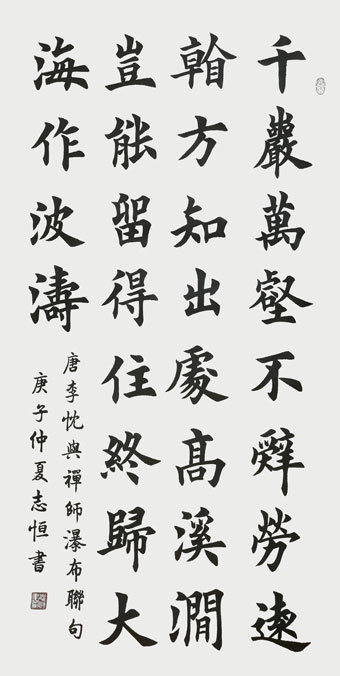 千巖萬壑不辭勞遠
看方知出處高溪澗
豈能留得住終歸大
海作波濤
唐李忱與禪師瀑布聯句
庚子仲夏志恒書